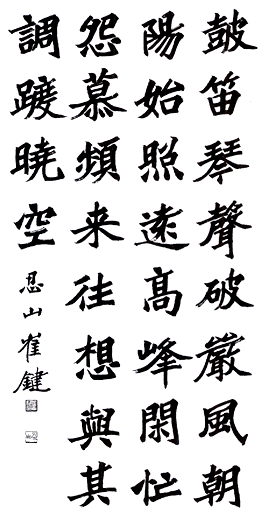 鼓笛琴聲破嚴風朝
陽始照遠高峰閑忙
怨慕頻来往想與其
調躞曉空
忍山崔鍵